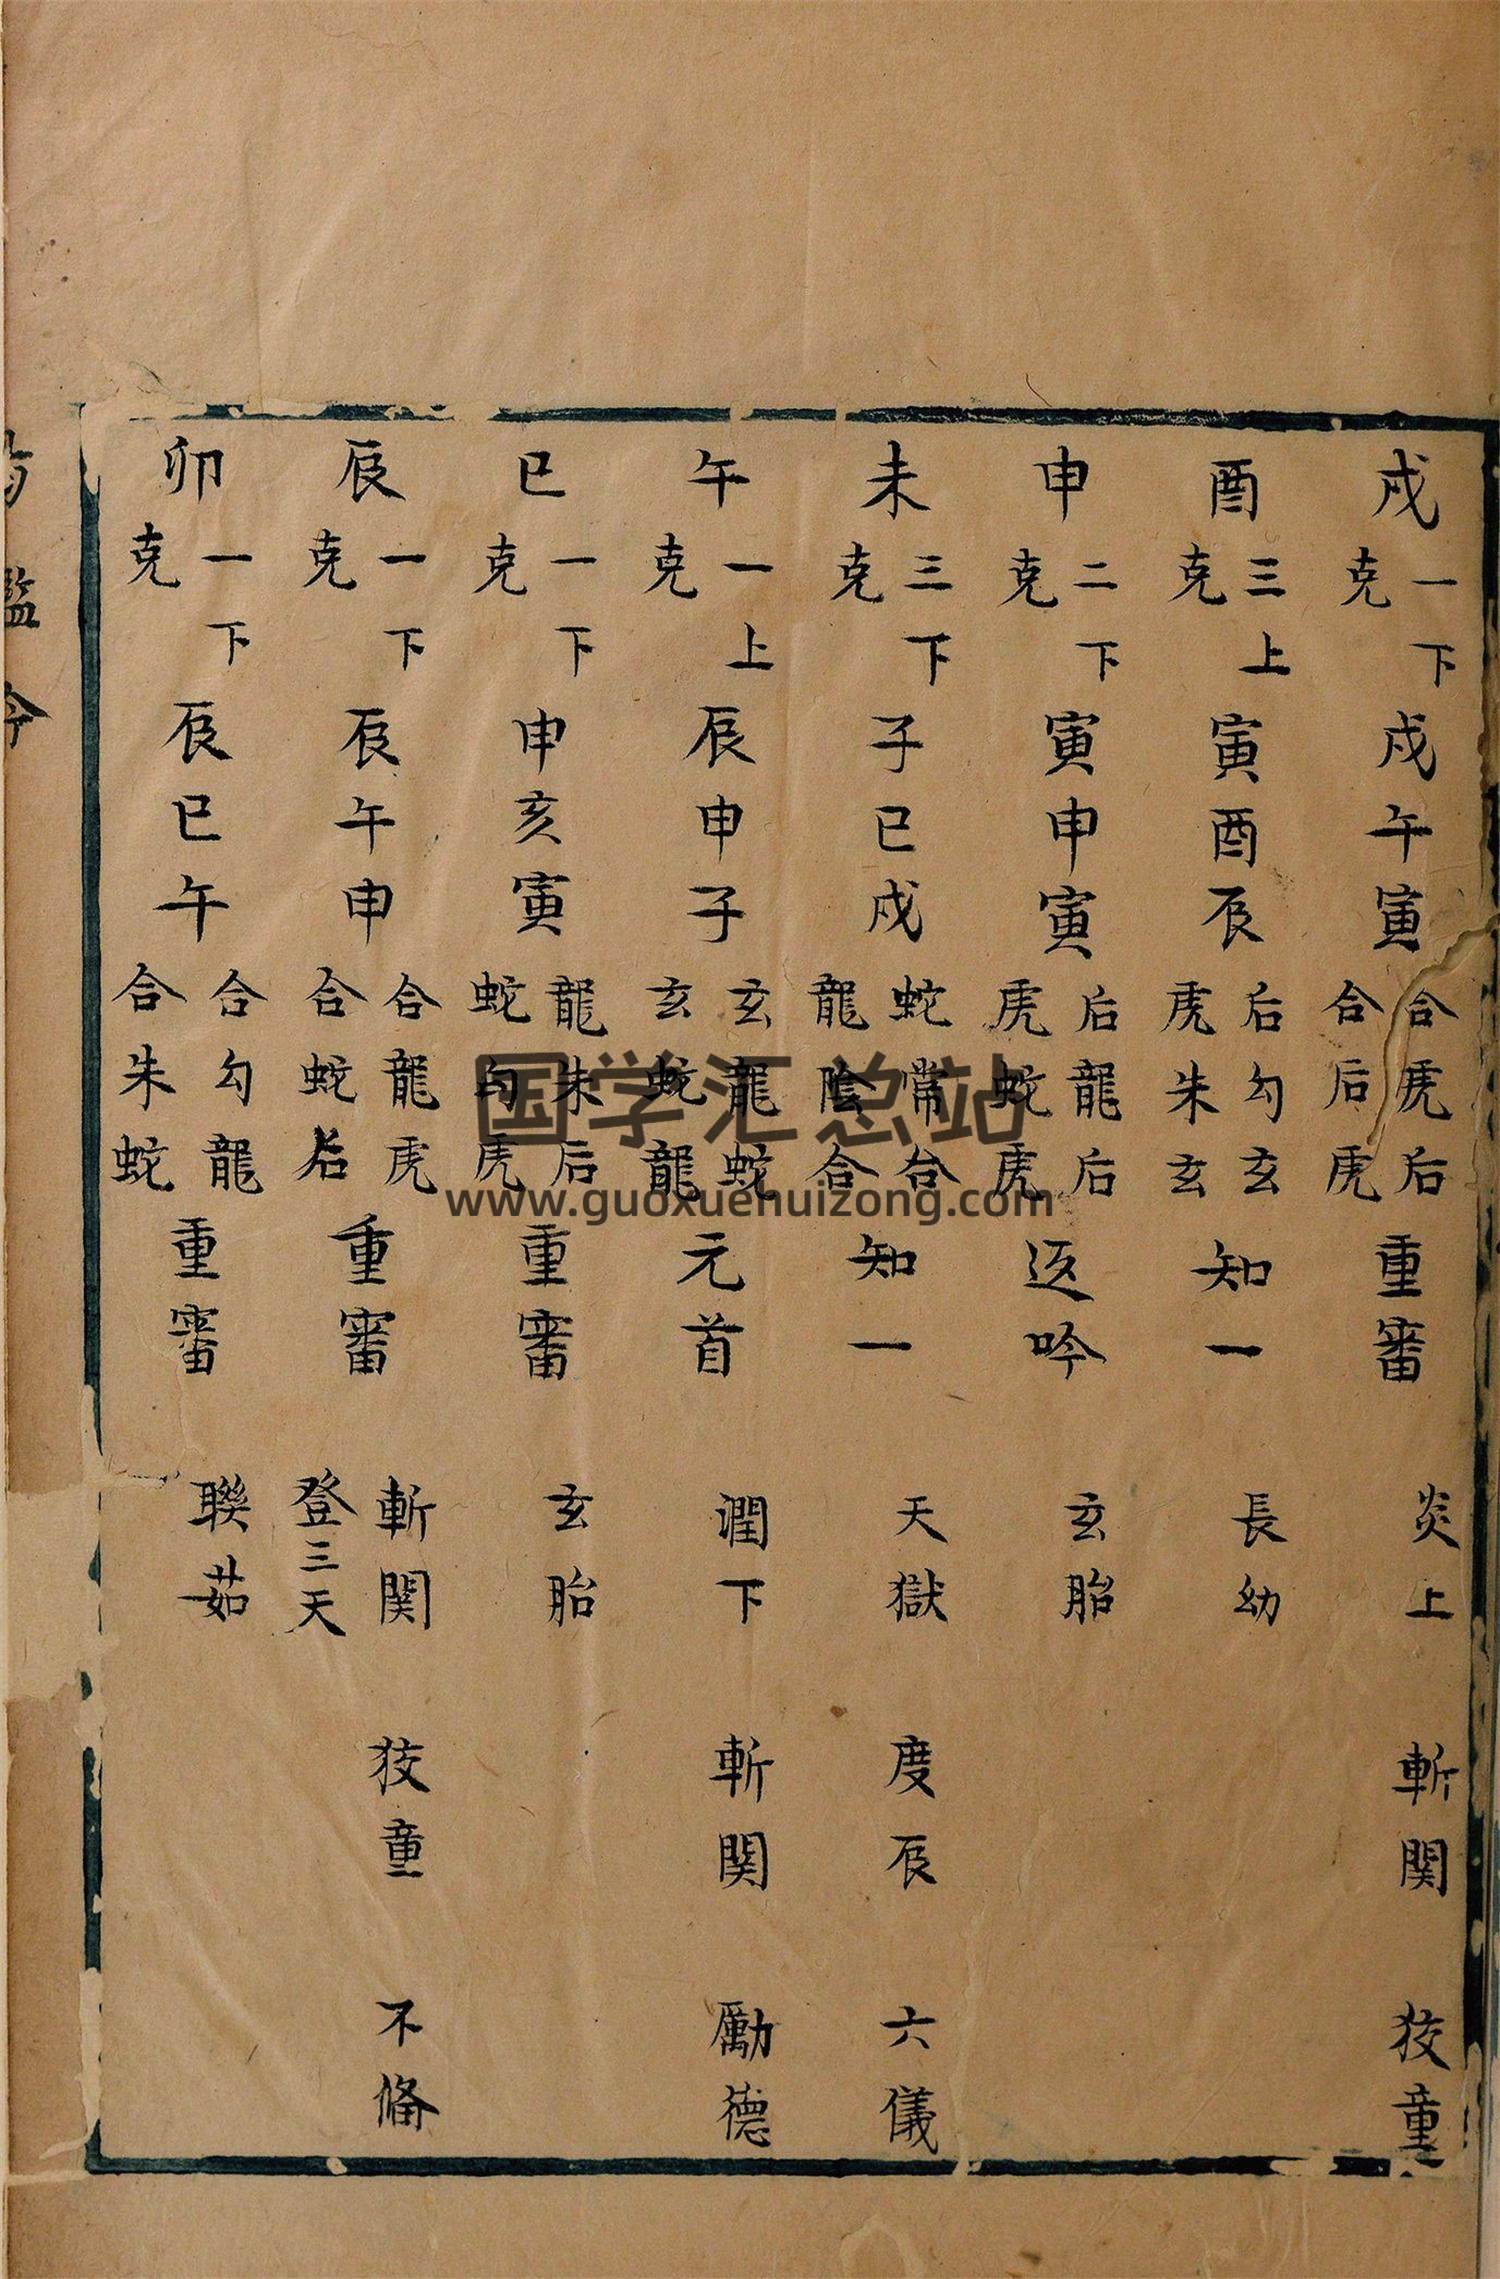 戌 一下克 戌午寅 合虎后 合后虎 重審 炎上 斬関 狡童
酉 三上克 寅酉辰 后勾玄 虎朱玄 知一 長幼
申 二下克 寅申寅 后龍后 虎蛇虎 返吟 玄胎
未 三下克 子巳戌 蛇常合 龍陰合 知一 天獄 度辰 六儀
午 一上克 辰申子 玄龍蛇 玄蛇龍 元首 潤下 斬関 勵德
巳 一下克 申亥寅 龍朱后 蛇勾虎 重審 玄胎
辰 一下克 辰午申 合龍虎 合蛇后 重審 斬関 登三天 狡童 不俻
卯 一下克 辰巳午 合勾龍 合朱蛇 重審 聯茹
国学汇总站
www.guoxuehuizong.com